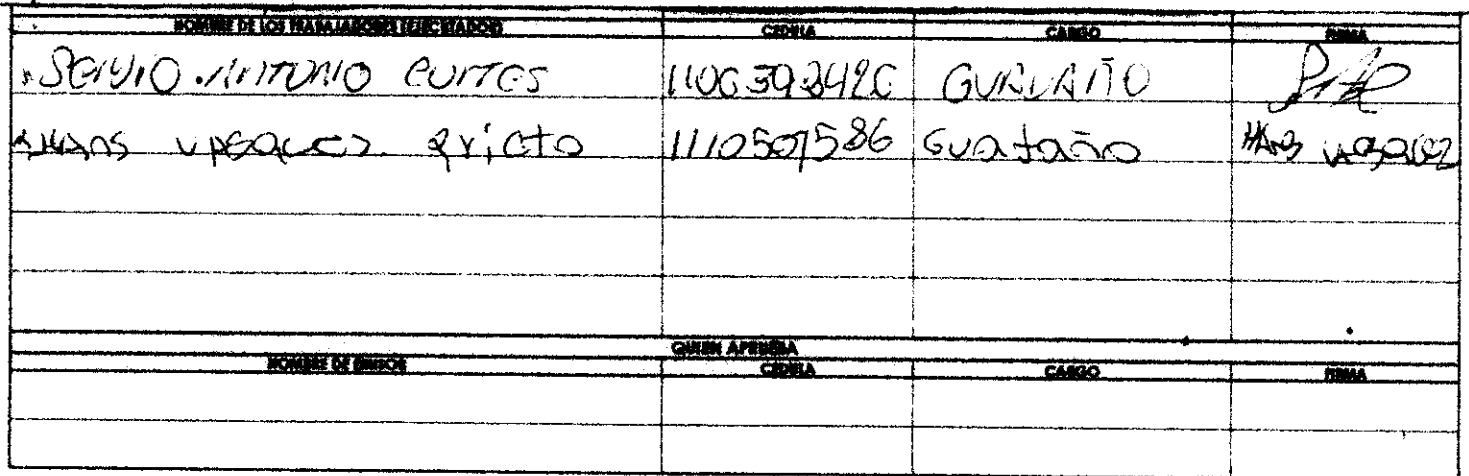 NOMBRE DE LOS TRABAJADORES (EJECUTADOR) CEDULA CARGO FIRMA
SERGIO ANTONIO CORTES 1106393426 GUADAÑO
HANS VASQUEZ 1110507586 GUADAÑO HANS VASQUEZ
QUIEN APRUEBA
NOMBRE DE EMISOR CEDULA CARGO FIRMA